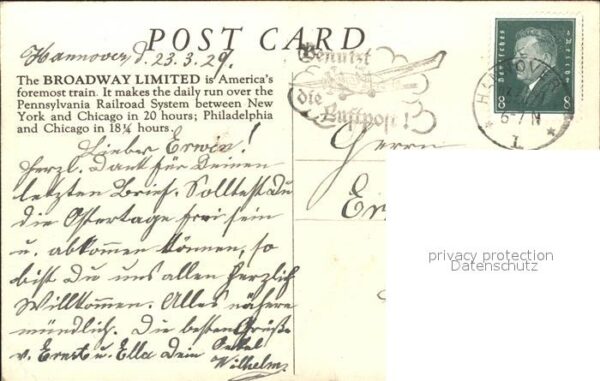 POST CARD
Hannover, d. 23.3.29.
The BROADWAY LIMITED is America's
foremost train. It makes the daily run over the
Pennsylvania Railroad System between New
York and Chicago in 20 hours; Philadelphia
and Chicago in 18¼ hours.
Lieber Erwin!
Herzl. Dank für Deinen
letzten Brief. Solltest Du
die Ostertage frei sein
u. abkommen können, so
bist Du uns allen herzlich
Willkommen. Alles nähere
mündlich. Die besten Grüße
v. Ernst u. Ella Dein Onkel
Wilhelm.
Benutzt
die Luftpost!
Deutsches Reich
8 8
HANNOVER
6-7 N
1
Herrn
Er
privacy protection
Datenschutz